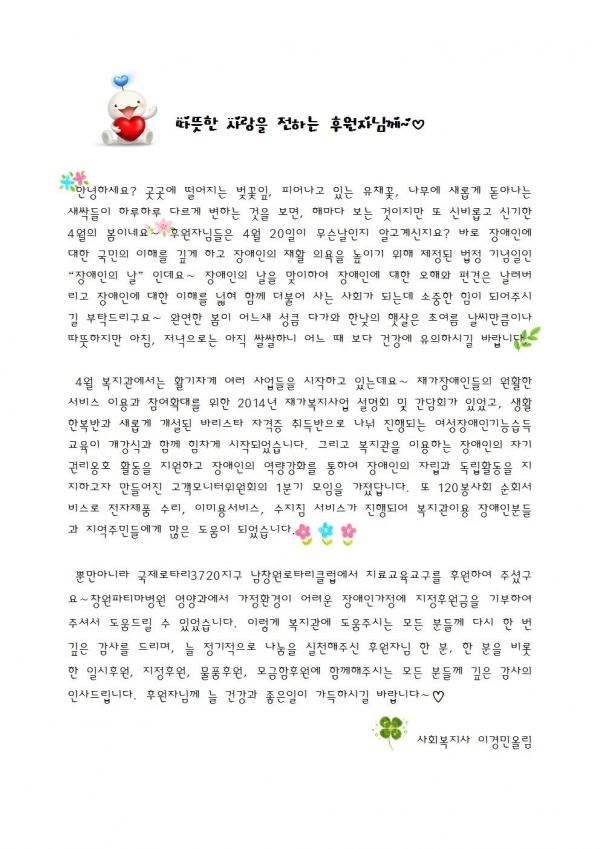 따뜻한 사랑을 전하는 후원자님께~♡
안녕하세요? 곳곳에 떨어지는 벚꽃잎, 피어나고 있는 유채꽃, 나무에 새롭게 돋아나는
새싹들이 하루하루 다르게 변하는 것을 보면, 해마다 보는 것이지만 또 신비롭고 신기한
4월의 봄이네요~ 후원자님들은 4월 20일이 무슨날인지 알고계신지요? 바로 장애인에
대한 국민의 이해를 깊게 하고 장애인의 재활 의욕을 높이기 위해 제정된 법정 기념일인
“장애인의 날” 인데요~ 장애인의 날을 맞이하여 장애인에 대한 오해와 편견은 날려버
리고 장애인에 대한 이해를 넓혀 함께 더불어 사는 사회가 되는데 소중한 힘이 되어주시
길 부탁드리구요~ 완연한 봄이 어느새 성큼 다가와 한낮의 햇살은 초여름 날씨만큼이나
따뜻하지만 아침, 저녁으로는 아직 쌀쌀하니 어느 때 보다 건강에 유의하시길 바랍니다.
4월 복지관에서는 활기차게 여러 사업들을 시작하고 있는데요~ 재가장애인들의 원활한
서비스 이용과 참여확대를 위한 2014년 재가복지사업 설명회 및 간담회가 있었고, 생활
한복반과 새롭게 개설된 바리스타 자격증 취득반으로 나뉘 진행되는 여성장애인기능습득
교육이 개강식과 함께 힘차게 시작되었습니다. 그리고 복지관을 이용하는 장애인의 자기
권리옹호 활동을 지원하고 장애인의 역량강화를 통하여 장애인의 자립과 독립활동을 지
지하고자 만들어진 고객모니터위원회의 1분기 모임을 가졌답니다. 또 120봉사회 순회서
비스로 전자제품 수리, 이미용서비스, 수지침 서비스가 진행되어 복지관이용 장애인분들
과 지역주민들에게 많은 도움이 되었습니다.
뿐만아니라 국제로타리3720지구 남창원로타리클럽에서 치료교육교구를 후원하여 주셨구
요~창원파티마병원 영양과에서 가정환경이 어려운 장애인가정에 지정후원금을 기부하여
주셔서 도움드릴 수 있었습니다. 이렇게 복지관에 도움주시는 모든 분들께 다시 한 번
깊은 감사를 드리며, 늘 정기적으로 나눔을 실천해주신 후원자님 한 분, 한 분을 비롯
한 일시후원, 지정후원, 물품후원, 모금함후원에 함께해주시는 모든 분들께 깊은 감사의
인사드립니다. 후원자님께 늘 건강과 좋은일이 가득하시길 바랍니다~♡
사회복지사 이경민올림